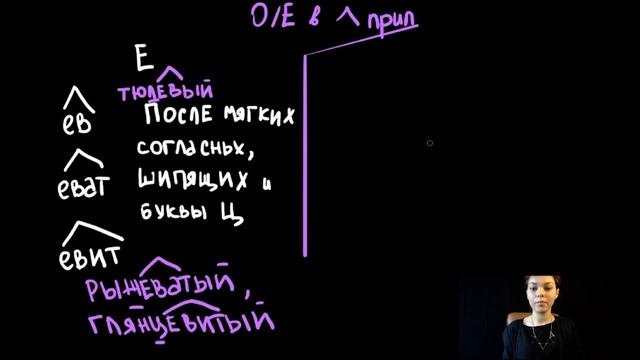 О/Е в ^ прил
Е
тюлевый
ев
После мягких
согласных,
еват
шипящих и
буквы Ц
евит
рыжеватый,
глянцевитый